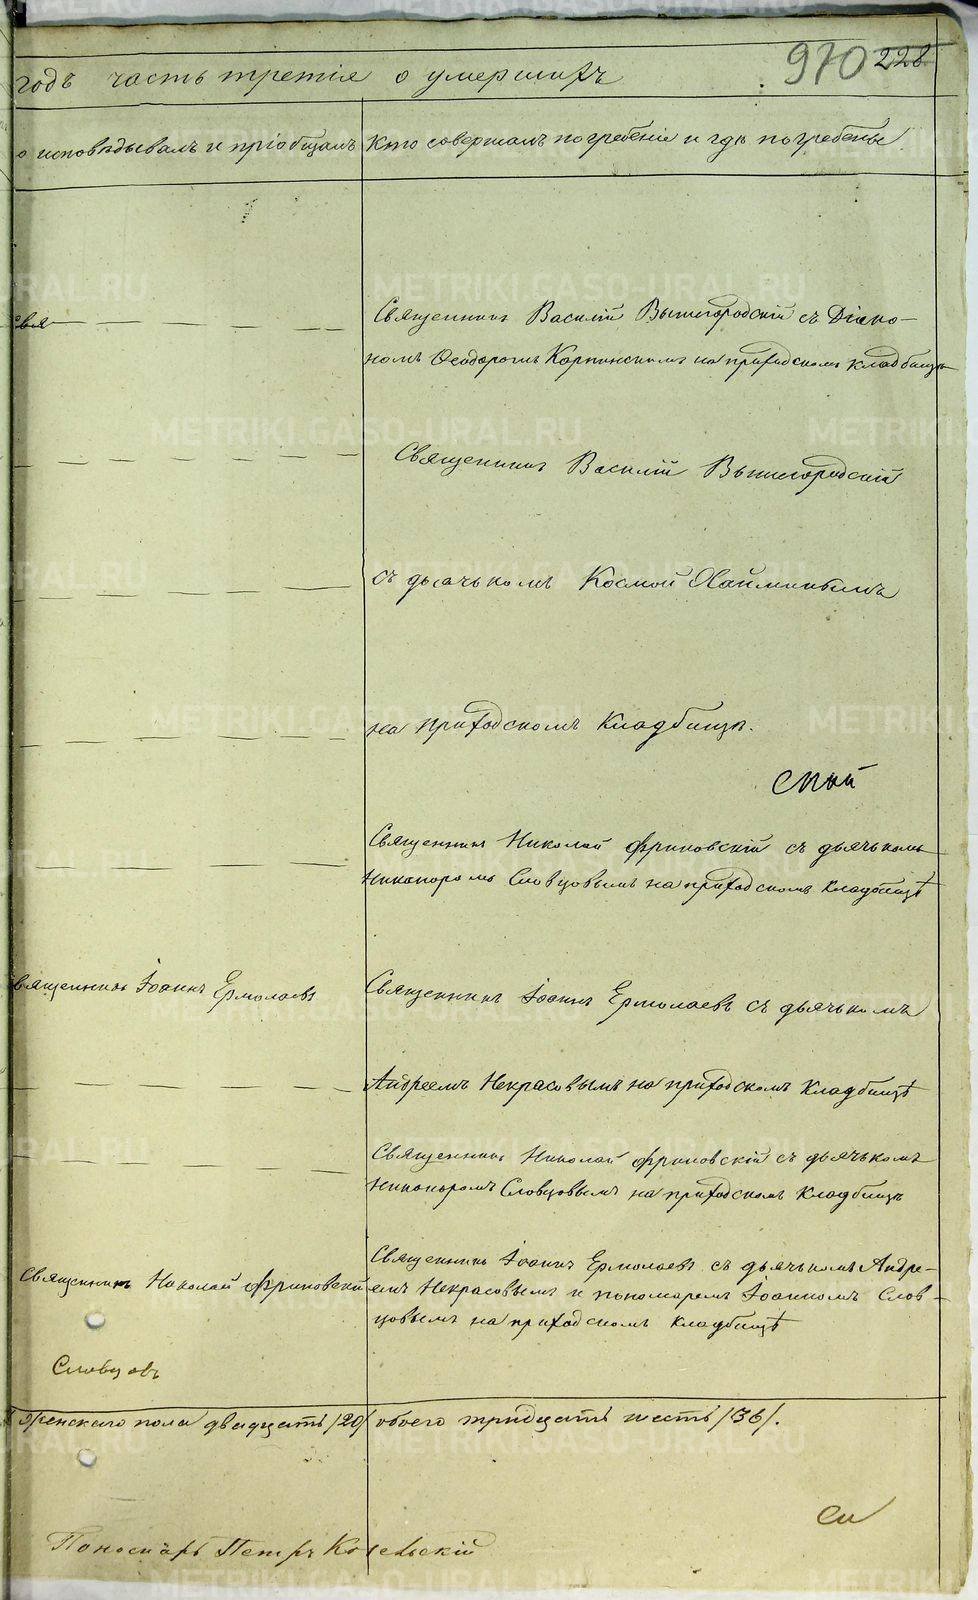 970 228
годъ часть третія о умершихъ
о исповѣдывалъ и пріобщалъ
Кто совершалъ погребеніе и гдѣ погребены
Священникъ Василій Вышегородскій съ Діако-
номъ Ѳеодоромъ Карпинскимъ на приходскомъ кладбищѣ
Священникъ Василій Вышегородскій
съ дьячькомъ Космой
на приходскомъ кладбищѣ.
Священникъ Николай Фриновскій съ дьячькомъ
Никаноромъ Словцовымъ на приходскомъ кладбищѣ
вященникъ Іоаннъ Ермолаевъ
Священникъ Іоаннъ Ермолаевъ съ дьячькомъ
Андреемъ Некрасовымъ на приходскомъ кладбищѣ
Священникъ Николай Фриновскій съ дьячькомъ
Никаноромъ Словцовымъ на приходскомъ кладбищѣ
Священникъ Николай Фриновскій
Священникъ Іоаннъ Ермолаевъ съ дьячькомъ Андре-
емъ Некрасовымъ и пономаремъ Іоанномъ Слов-
цовымъ на приходскомъ кладбищѣ
Словцовъ
женскаго пола двадцать /20/ обоего тридцать шесть /36/.
Пономарь Петръ
METRIKI.GASO-URAL.RU